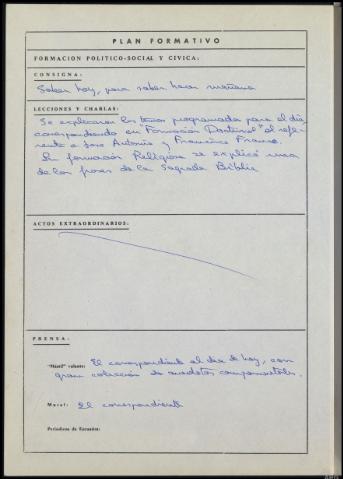 PLAN FORMATIVO
FORMACION POLITICO-SOCIAL Y CIVICA:
CONSIGNA:
Saber hoy, para saber hacer mañana
LECCIONES Y CHARLAS:
Se explicaron los temas programados para el día,
correspondiendo en "Formación Doctrinal" al refe-
rente a José Antonio y Francisco Franco.
En formación Religiosa se explicó una
de las frases de la Sagrada Biblia
ACTOS EXTRAORDINARIOS:
PRENSA:
"Mástil" volante: El correspondiente al día de hoy, con
gran colección de anécdotas campamentales.
Mural: El correspondiente
Periódicos de Escuadra: